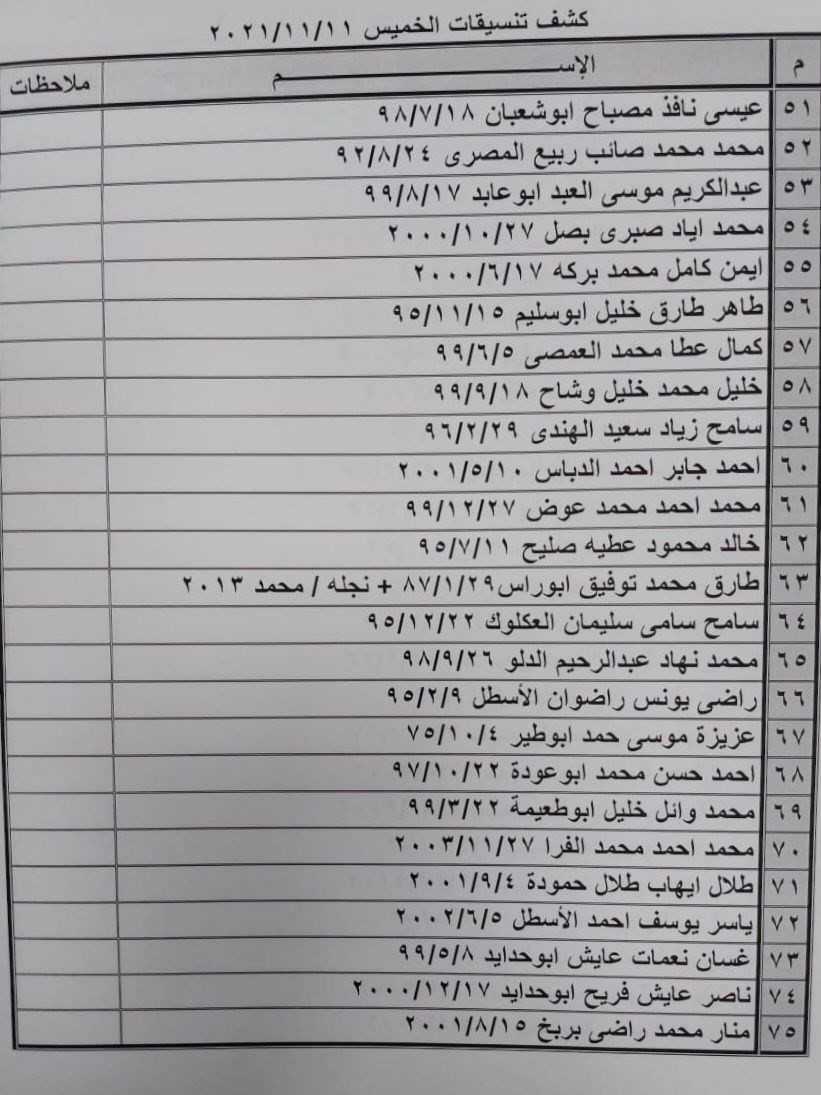 كشف تنسيقات الخميس ٢٠٢١/١١/١١
م الإســــــــم ملاحظات
٥١ عيسى نافذ مصباح ابوشعبان ٩٨/٧/١٨
٥٢ محمد محمد صائب ربيع المصرى ٩٢/٨/٢٤
٥٣ عبدالكريم موسى العبد ابوعابد ٩٩/٨/١٧
٥٤ محمد اياد صبرى بصل ٢٠٠٠/١٠/٢٧
٥٥ ايمن كامل محمد بركه ٢٠٠٠/٦/١٧
٥٦ طاهر طارق خليل ابوسليم ٩٥/١١/١٥
٥٧ كمال عطا محمد العمصى ٩٩/٦/٥
٥٨ خليل محمد خليل وشاح ٩٩/٩/١٨
٥٩ سامح زياد سعيد الهندى ٩٦/٢/٢٩
٦٠ احمد جابر احمد الدباس ٢٠٠١/٥/١٠
٦١ محمد احمد محمد عوض ٩٩/١٢/٢٧
٦٢ خالد محمود عطيه صليح ٩٥/٧/١١
٦٣ طارق محمد توفيق ابوراس٨٧/١/٢٩ + نجله / محمد ٢٠١٣
٦٤ سامح سامى سليمان العكلوك ٩٥/١٢/٢٢
٦٥ محمد نهاد عبدالرحيم الدلو ٩٨/٩/٢٦
٦٦ راضى يونس راضوان الأسطل ٩٥/٢/٩
٦٧ عزيزة موسى حمد ابوطير ٧٥/١٠/٤
٦٨ احمد حسن محمد ابوعودة ٩٧/١٠/٢٢
٦٩ محمد وائل خليل ابوطعيمة ٩٩/٣/٢٢
٧٠ محمد احمد محمد الفرا ٢٠٠٣/١١/٢٧
٧١ طلال ايهاب طلال حمودة ٢٠٠١/٩/٤
٧٢ ياسر يوسف احمد الأسطل ٢٠٠٢/٦/٥
٧٣ غسان نعمات عايش ابوحدايد ٩٩/٥/٨
٧٤ ناصر عايش فريح ابوحدايد ٢٠٠٠/١٢/١٧
٧٥ منار محمد راضى بربخ ٢٠٠١/٨/١٥